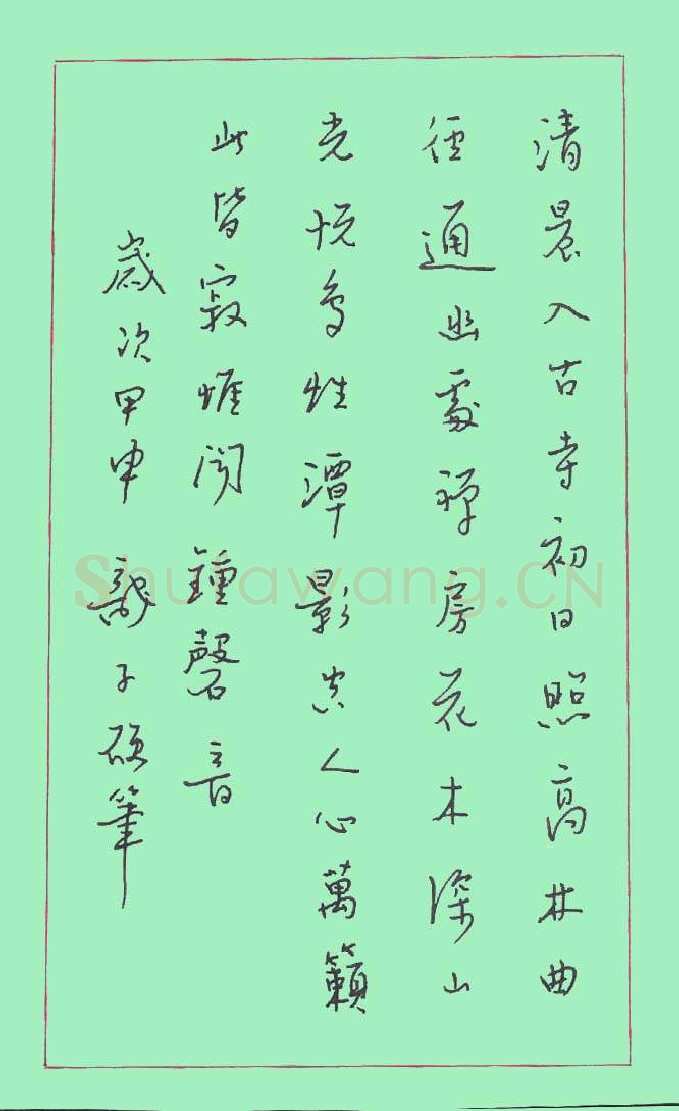 清晨入古寺初日照高林曲
徑通幽處禪房花木深山
光悅鳥性潭影空人心萬籟
此皆寂惟聞鐘磬音
歲次甲申 子碩筆
Shufawang.CN